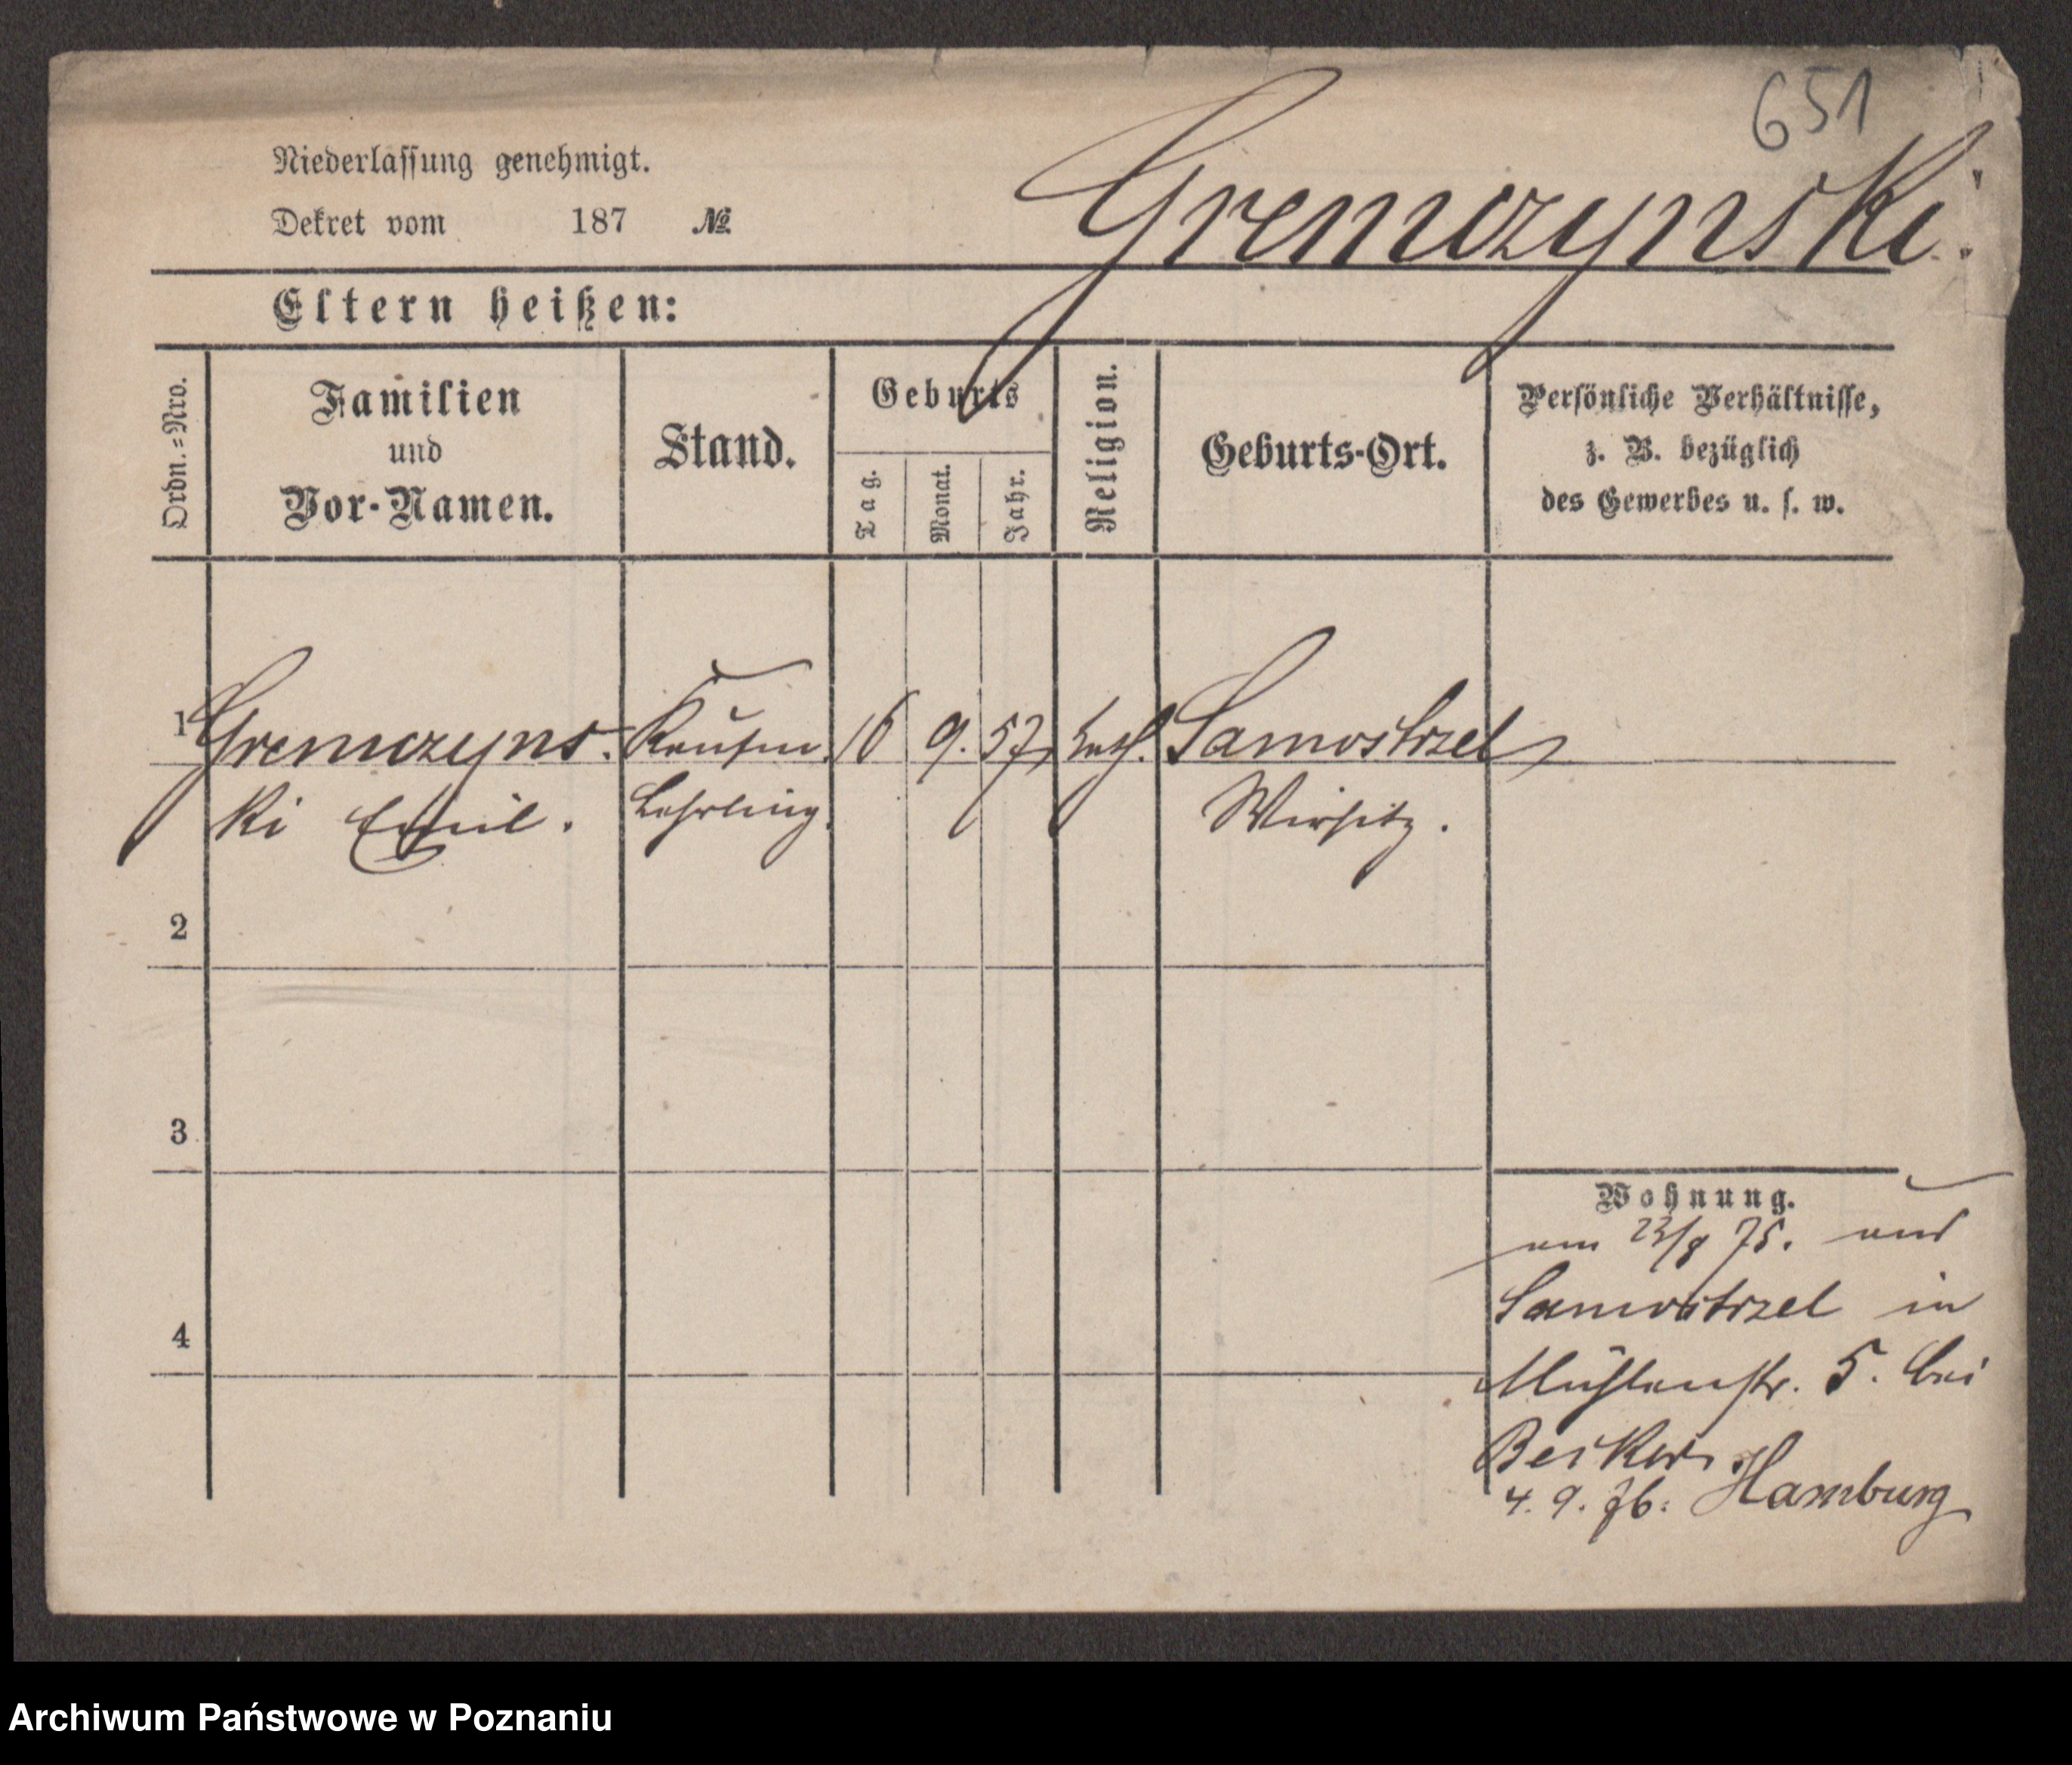 651
Niederlassung genehmigt.
Dekret vom 187 №
Gremczynski.
Eltern heißen:
Ordn.=Nro.
Familien
und
Vor-Namen.
Stand.
Geburts
Tag.
Monat.
Jahr.
Religion.
Geburts-Ort.
Persönliche Verhältnisse,
z. B. bezüglich
des Gewerbes u. s. w.
1 Gremczyns- Kaufm. 16 9. 57 kath. Samostrzel
ki Emil. Lehrling. Wirsitz.
2
3
4
Wohnung.
am 23/8 75. aus
Samostrzel in
Mühlenstr. 5. bei
4. 9. 76. Hamburg
Archiwum Państwowe w Poznaniu